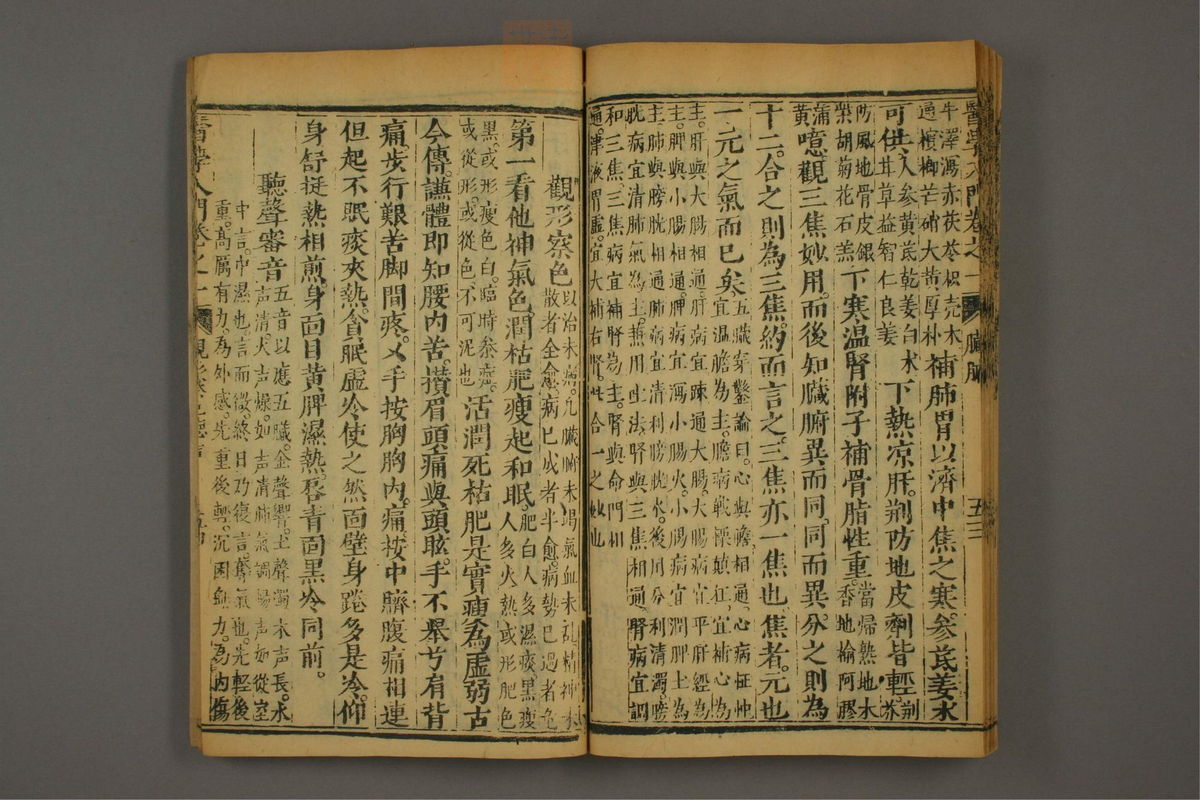 醫學入門卷之一 臟腑 五三
牛澤瀉赤茯苓枳壳木
過檳榔芒硝大黃厚朴補肺胃以濟中焦之寒參芪姜朮
可供人參黃芪乾姜白朮
甘草益智仁良姜下熱凉肝荆防地皮劑皆輕荆芥
防風地骨皮銀
柴胡菊花石羔下寒温腎附子補骨脂性重當歸熟地木
香地榆阿膠
蒲黃噫觀三焦妙用而後知臟腑異而同同而異分之則為
十二合之則為三焦約而言之三焦亦一焦也焦者元也
一元之氣而已矣五臟穿鑿論曰心與膽相通心病怔忡
宜温膽為主膽病戰慄顛狂宜補心為
主肝與大腸相通肝病宜疎通大腸大腸病宜平肝經為
主脾與小腸相通脾病宜瀉小腸火小腸病宜潤脾土為
主肺與膀胱相通肺病宜清利膀胱水後用分利清濁膀
胱病宜清肺氣為主兼用吐法腎與三焦相通腎病宜調
和三焦三焦病宜補腎為主腎與命門相
通津液胃虛宜大補右腎此合一之妙也
觀形察色以治未病凡臟腑未竭氣血未乱精神未
散者全愈病已成者半愈病勢已過者危
第一看他神氣色潤枯肥瘦起和眠肥白人多濕痰黑瘦
人多火熱或形肥色
黑或形瘦色白臨時參齊
或從形或從色不可泥也活潤死枯肥是實瘦為虛弱古
今傳謙體即知腰内苦攢眉頭痛與頭眩手不舉兮肩背
痛步行艱苦脚間疼乂手按胸胸内痛按中臍腹痛相連
但起不眠痰夾熱貪眠虛冷使之然面壁身踡多是冷仰
身舒挺熱相煎身面目黃脾濕熱唇青面黑冷同前
聽聲審音五音以應五臟金聲響土聲濁木声長水
声清火声燥如声清肺氣調暢声如從室
中言中濕也言而微終日乃復言奪氣也先輕後
重高厲有力為外感先重後輕沉困無力為内傷
醫學入門卷之一 觀形察色聽声